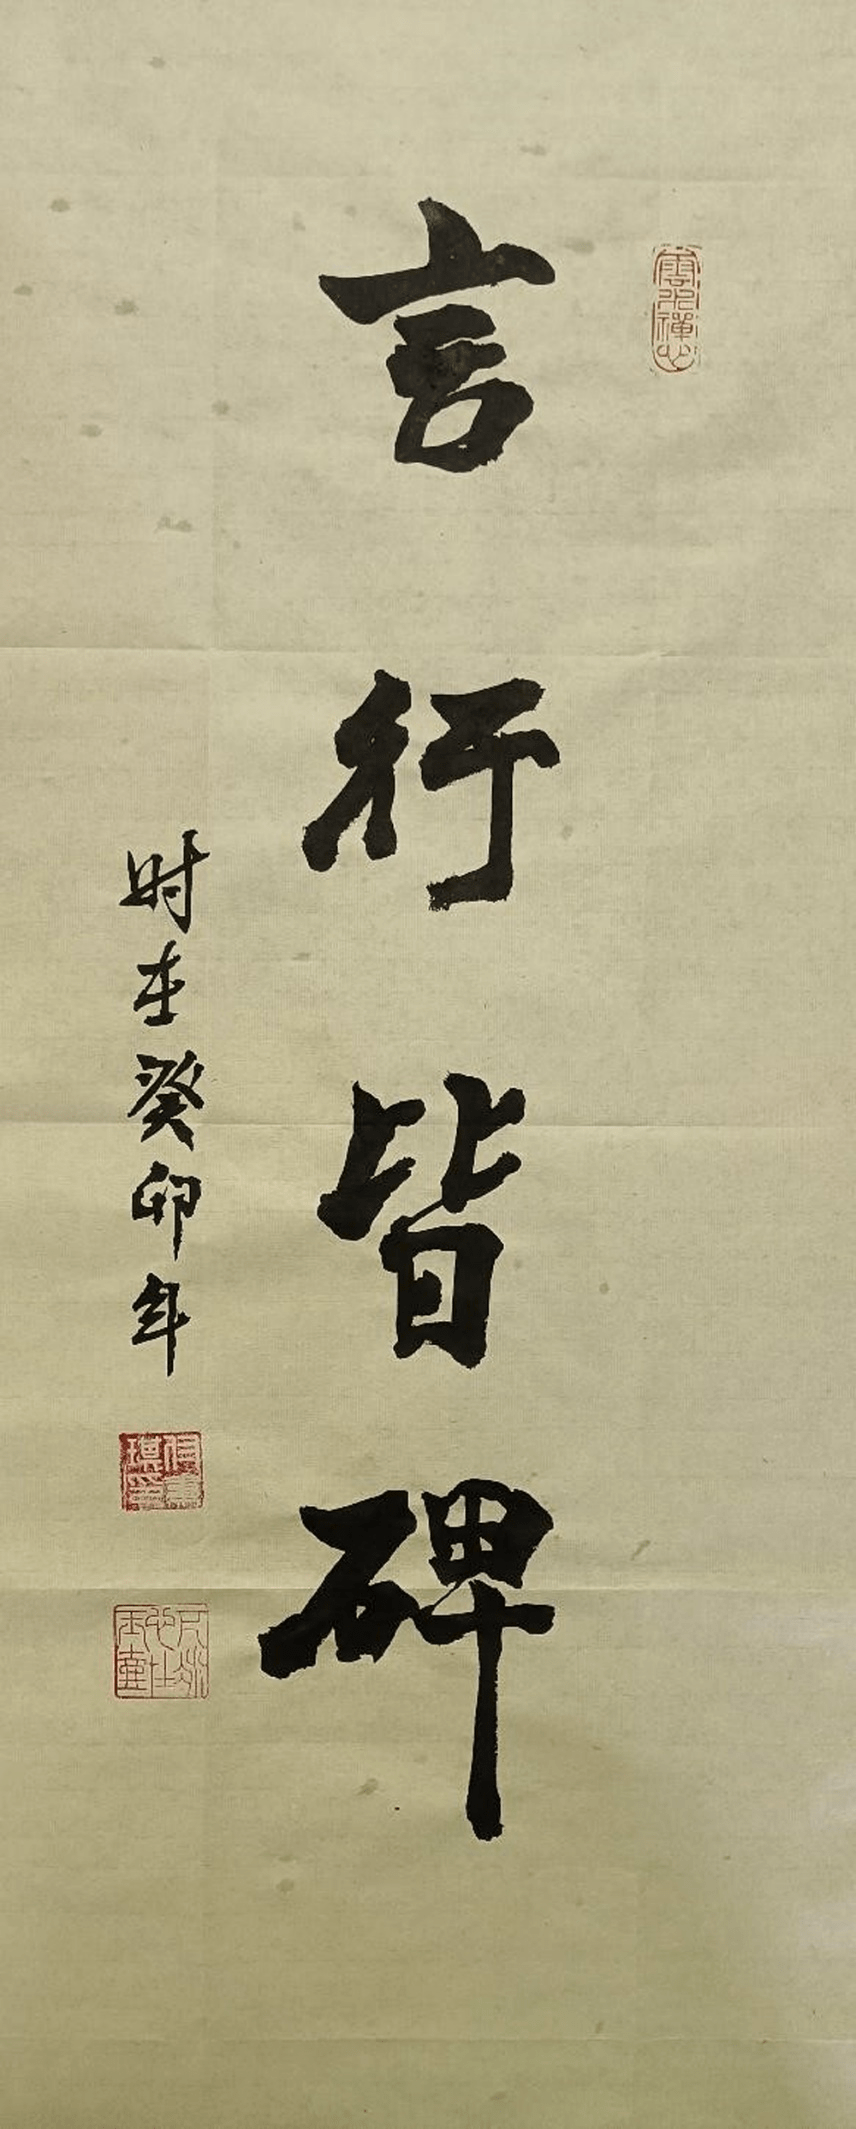 言行皆碑
时在癸卯年